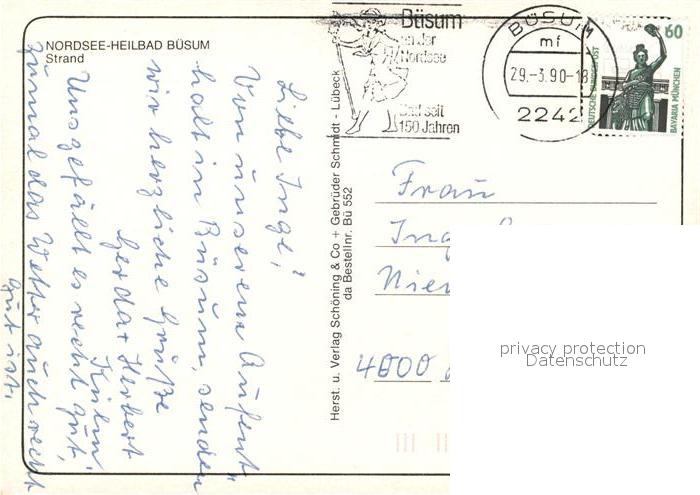 NORDSEE-HEILBAD BÜSUM
Strand
Liebe Inge,
Von unserem Aufent
halt in Büsum, senden
wir herzliche Grüße
Gerda + Herbert
Uns gefällt es recht gut,
zumal das Wetter auch recht
gut ist.
Herst. u. Verlag Schöning & Co + Gebrüder Schmidt - Lübeck
da Bestellnr. Bü 552
Büsum
an der
Nordsee
Bad seit
150 Jahren
BÜSUM
mf
29.-3.90-18
2242
60
DEUTSCHE BUNDESPOST
BAVARIA MÜNCHEN
Frau
Ing
4000
privacy protection
Datenschutz